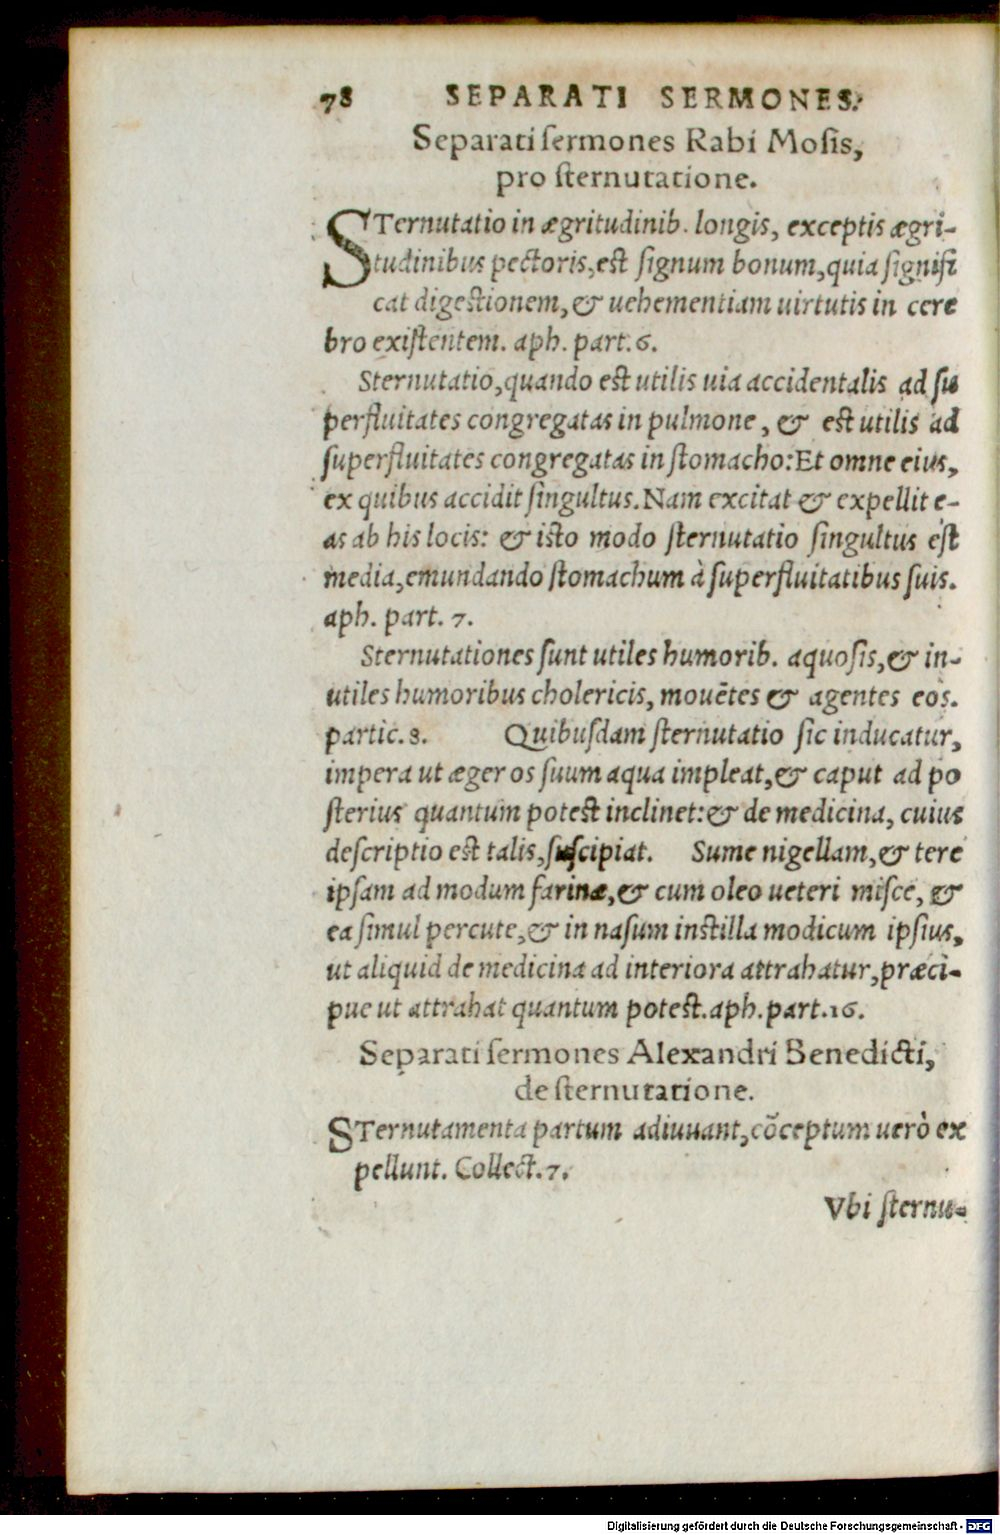 78 SEPARATI SERMONES.
Separati sermones Rabi Mosis,
pro sternutatione.
STernutatio in ægritudinib. longis, exceptis ægri-
tudinibus pectoris, est signum bonum, quia signifi
cat digestionem, & uehementiam uirtutis in cere
bro existentem. aph. part. 6.
Sternutatio, quando est utilis uia accidentalis ad su
perfluitates congregatas in pulmone, & est utilis ad
superfluitates congregatas in stomacho: Et omne eius,
ex quibus accidit singultus. Nam excitat & expellit e-
as ab his locis: & isto modo sternutatio singultus est
media, emundando stomachum à superfluitatibus suis.
aph. part. 7.
Sternutationes sunt utiles humorib. aquosis, & in-
utiles humoribus cholericis, mouẽtes & agentes eos.
partic. 8. Quibusdam sternutatio sic inducatur,
impera ut æger os suum aqua impleat, & caput ad po
sterius quantum potest inclinet: & de medicina, cuius
descriptio est talis, suscipiat. Sume nigellam, & tere
ipsam ad modum farinæ, & cum oleo ueteri misce, &
ea simul percute, & in nasum instilla modicum ipsius,
ut aliquid de medicina ad interiora attrahatur, præci-
pue ut attrahat quantum potest. aph. part. 16.
Separati sermones Alexandri Benedicti,
de sternutatione.
STernutamenta partum adiuuant, cõceptum uerò ex
pellunt. Collect. 7.
Vbi sternu-
Digitalisierung gefördert durch die Deutsche Forschungsgemeinschaft - DFG